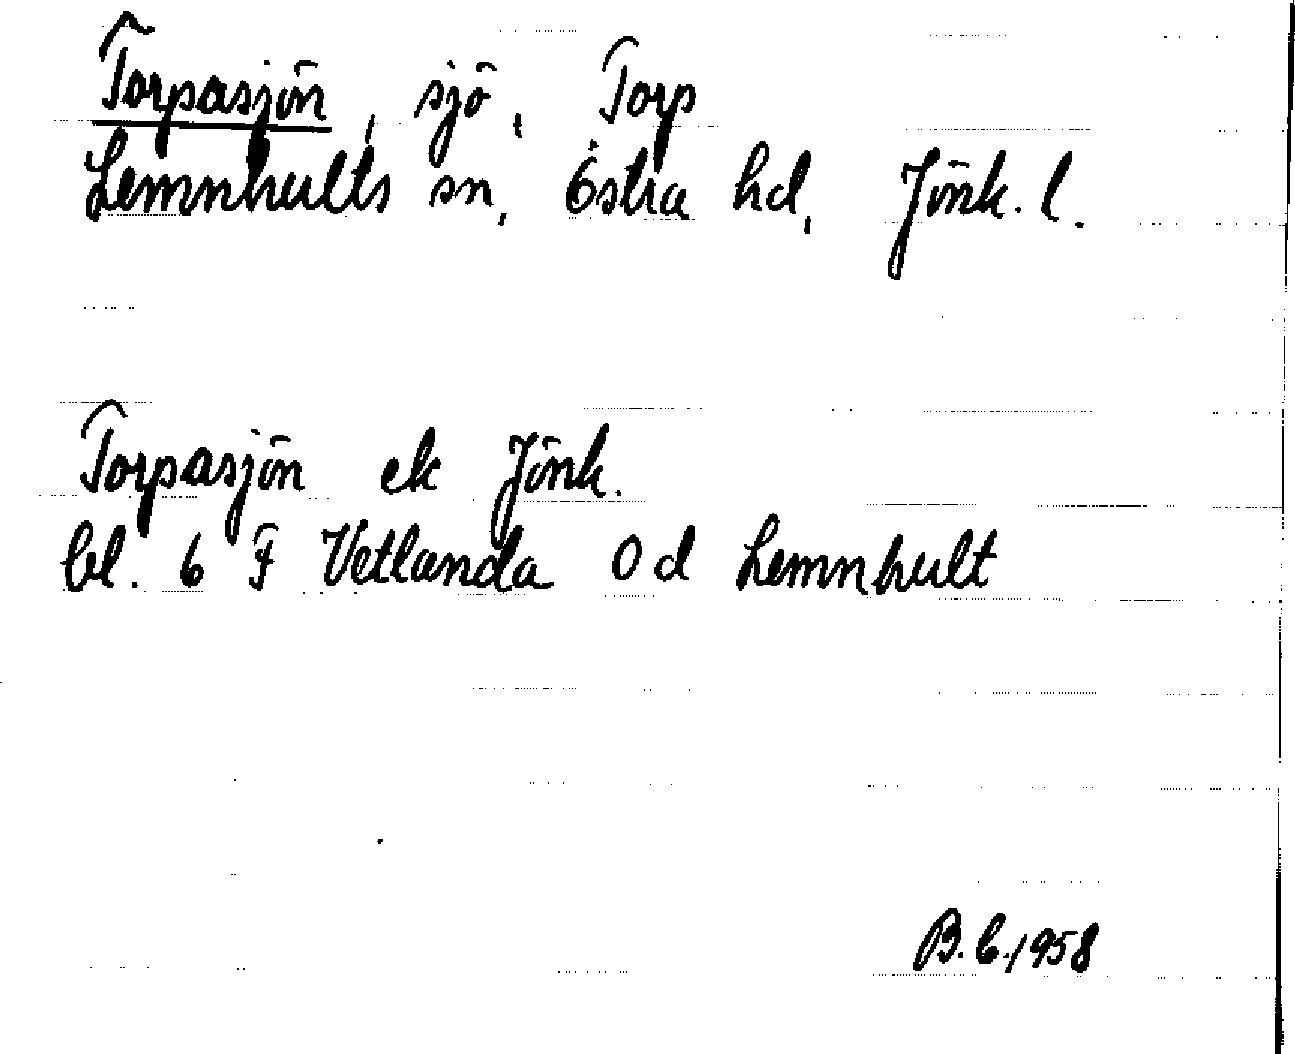 Torpasjön, sjö, Torp
Lemnhults sn, Östra hd, Jönk. l.
Torpasjön ek Jönk.
bl. 6 F Vetlanda 0 d Lemnhult
B. C. 1958